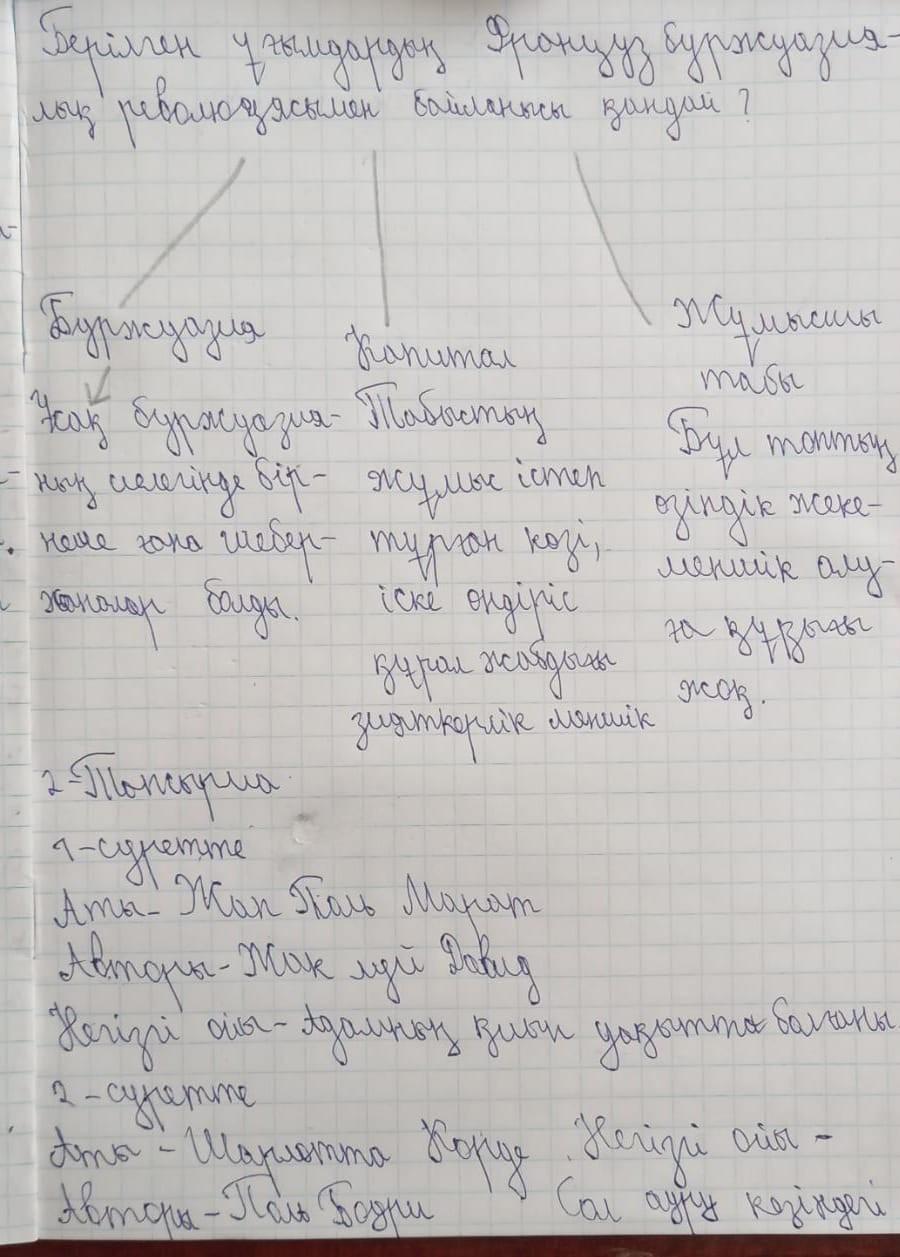 Берілген ұғымдардың Француз буржуазия-
лық революциясымен байланысы қандай?
Буржуазия
Ұсақ буржуазия-
ның иелегінде бір-
неше ғана шебер-
ханалар болды.
Капитал
Табыстың
жұмыс істеп
тұрған көзі,
іске өндіріс
құрал жабдығы
зияткерлік меншік
Жұмысшы
табы
Бұл топтың
өзіндік жеке-
меншік алу-
ға құқығы
жоқ.
2-Тапсырма
1-суретте
Аты-Жан Поль Марат
Авторы-Жак луй Давид
Негізгі ойы-Адамның қиын уақытта болғаны
2-суретте
Аты-Шарлотта Корде. Негізгі ойы-
Авторы-Поль Бодри Сол ауру кезіндегі